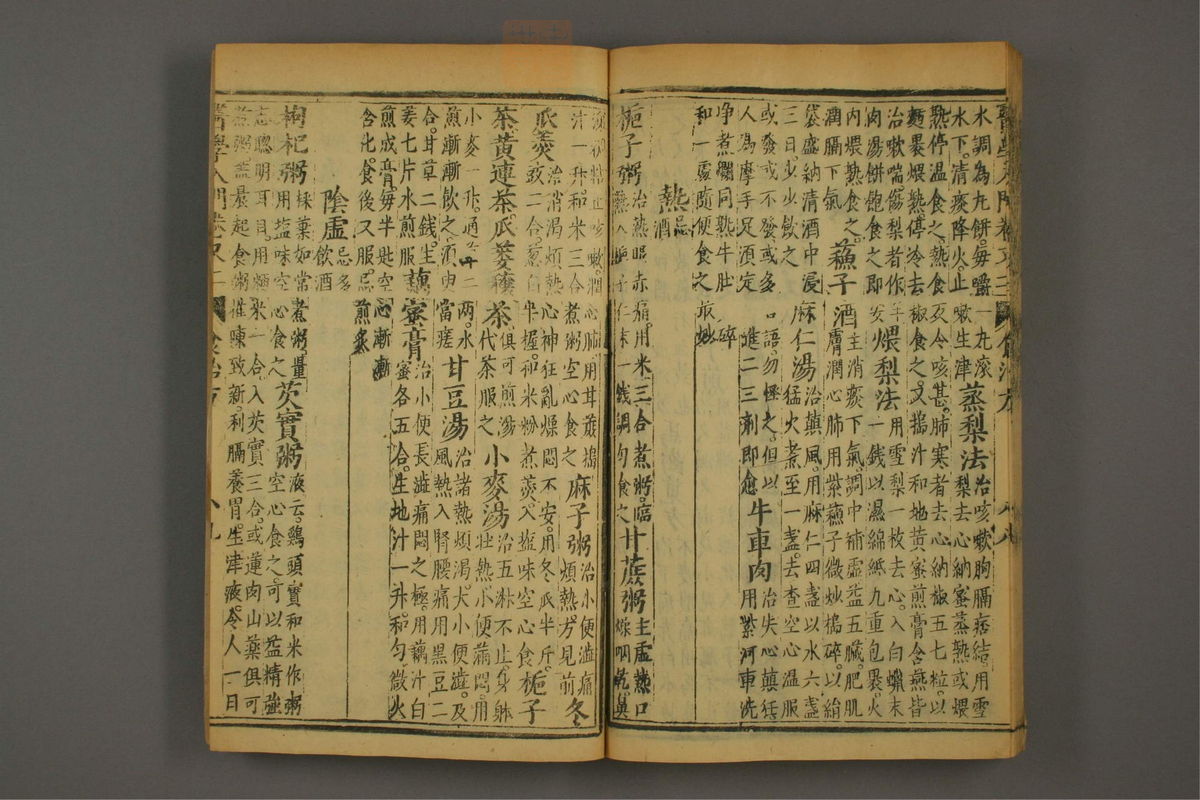 水調為九餅每嚼一九滚
水下清痰降火止嗽生津
蒸梨法
治咳嗽胸膈痞結用雪
梨去心納蜜蒸熟或煨
熟停温食之熱食反令咳甚肺寒者去心納椒五七粒以
麪裹煨熟停冷去椒食之又搗汁和地黄蜜煎膏含嚥皆
治嗽喘傷梨者作羊
肉湯餅飽食之即安
煨梨法
用雪梨一枚去心入白蠟末
一錢以濕綿紙九重包裹火
內煨熟食之
潤膈下氣
蘇子酒
主消痰下氣調中補虛益五臟肥肌
膚潤心肺用紫蘇子微炒搗碎以絹
袋盛納清酒中浸
三日少少飲之
麻仁湯
治瘨風用麻仁四盞以水六盞
猛火煮至一盞去查空心温服
或發或不發或多口語勿怪之但以
人為摩手足須定進二三劑即愈
牛車肉
治失心瘨狂
用紫河車洗
净煮爛同熟牛肚碎
和一處隨便食之最妙
熱
忌酒
梔子粥
治熱眼赤痛用米三合煮粥臨
熟入梔子仁末一錢調勻食之
甘蔗粥
主虛熱口
燥咽乾鼻
涕稠粘止咳嗽潤心肺用甘蔗搗
汁一升和米三合煮粥空心食之
麻子粥
治小便澁痛
煩熱方見前
冬
瓜羹
治消渴煩熱心神狂亂燥悶不安用冬瓜半斤
豉二合葱白半握和米粉煮羹入塩味空心食
梔子
茶黄連茶瓜蔞穰茶
俱可煎湯
代茶服之
小麥湯
治五淋不止身躰
壯熱小便滿悶用
小麥一升通艸二兩水
煎漸漸飲之須臾當瘥
甘豆湯
治諸熱煩渴大小便澁及
風熱入腎腰痛用黑豆二
合甘草二錢生
姜七片水煎服
藕蜜膏
治小便長澁痛悶之極用藕汁白
蜜各五合生地汁一升和勻微火
煎成膏每半匙空心漸漸
含化食後又服忌煎炙
陰虛
忌多飲酒
枸杞粥
採葉如常煮粥量
用塩味空心食之
芡實粥
液云雞頭實和米作粥
空心食之可以益精強
志聰明耳目用粳米一合入芡實三合或蓮肉山藥俱可
煮粥並晨起食粥推陳致新利膈養胃生津液令人一日
醫學入門卷之二
食治方
八九